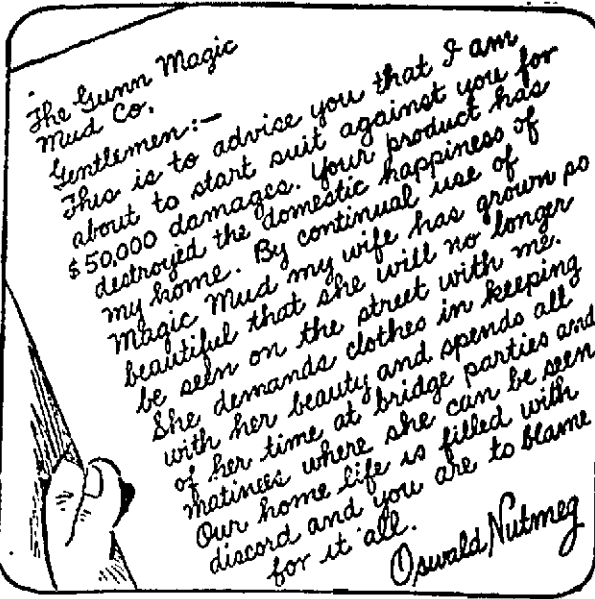 The Gunn Magic
Mud Co.
Gentlemen:—
This is to advise you that I am
about to start suit against you for
$50,000 damages. Your product has
destroyed the domestic happiness of
my home. By continual use of
Magic Mud my wife has grown so
beautiful that she will no longer
be seen on the street with me.
She demands clothes in keeping
with her beauty and spends all
of her time at bridge parties and
matinees where she can be seen
Our home life is filled with
discord and you are to blame
for it all.
Oswald Nutmeg